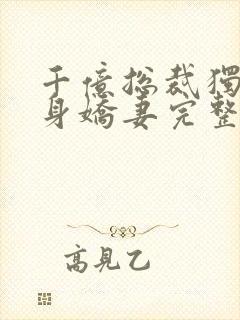 千億總裁獨
身嬌妻完整
高見乙